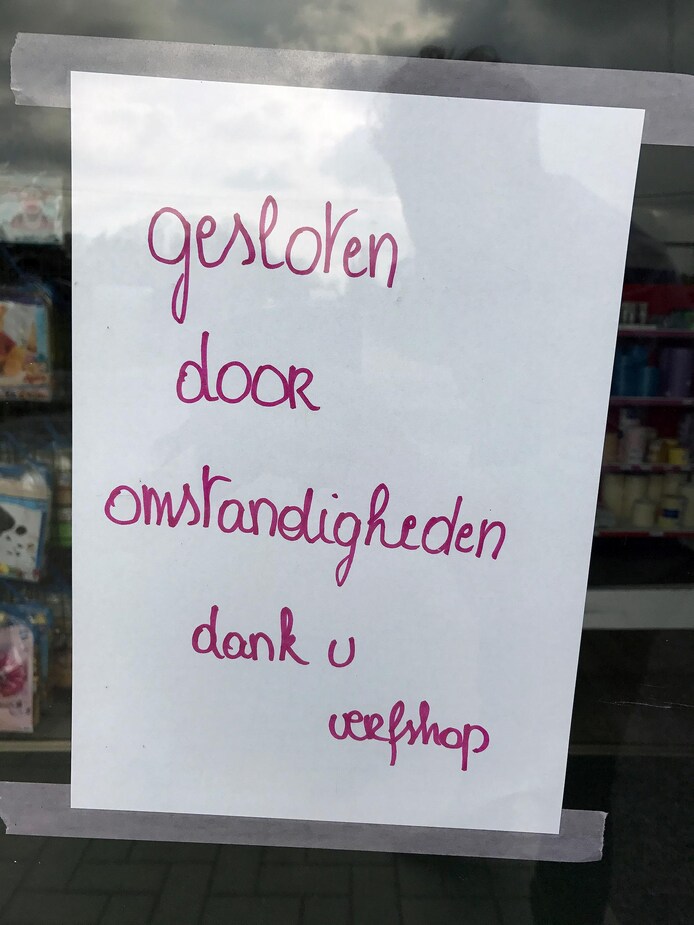 gesloten
door
omstandigheden
dank u
verfshop